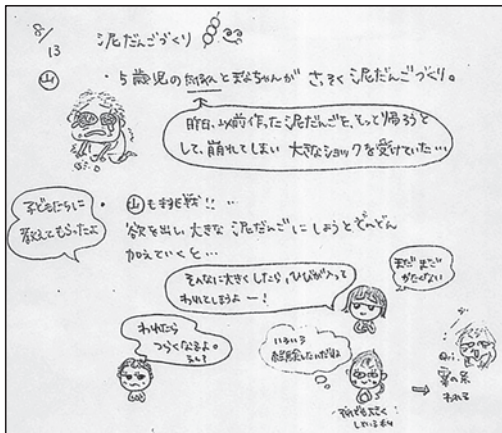 8/13 泥だんごづくり
山 ・5歳児の とまなちゃんが さっそく泥だんごづくり。
昨日、以前作った泥だんごを、もって帰ろうと
して、崩れてしまい 大きなショックを受けていた…
子どもたちに
教えてもらったよ
・山も挑戦!! …
欲を出し、大きな 泥だんごにしようとどんどん
加えていくと…
そんなに大きくしたら、ひびが入って
われてしまうよー!
まだまだ
かたくない
われたら
つらくなるよ。
いろいろ
経験したんだね
それでも大きく
している山
→
われる